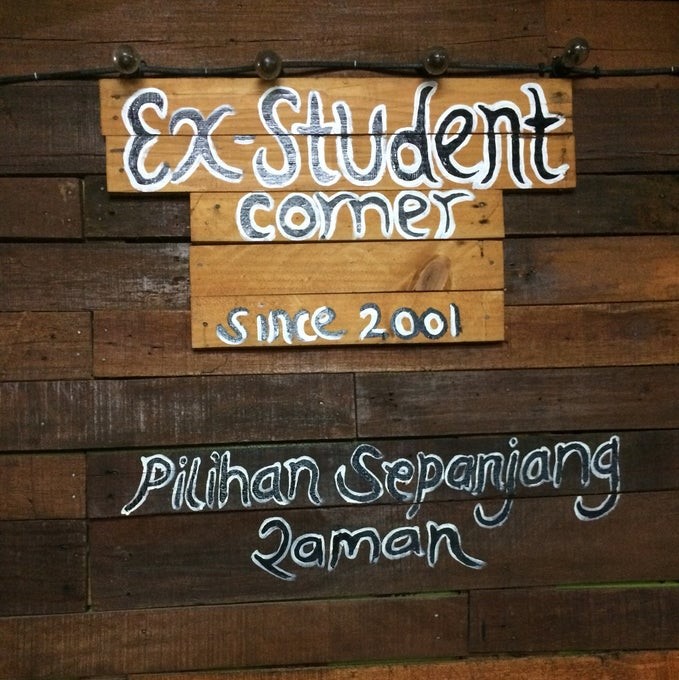 Ex-Student
corner
since 2001
Pilihan Sepanjang
Zaman